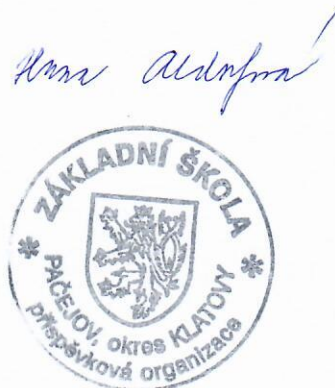 ZÁKLADNÍ ŠKOLA
PAČEJOV, okres KLATOVY
příspěvková organizace